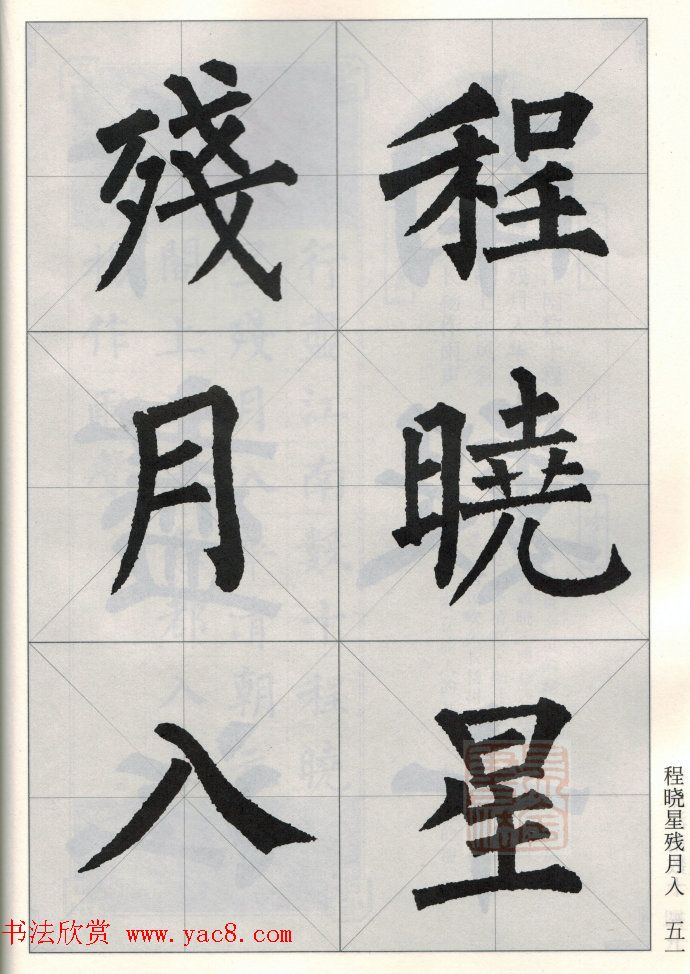 程曉星
殘月入
程晓星残月入 五一
书法欣赏 www.yac8.com